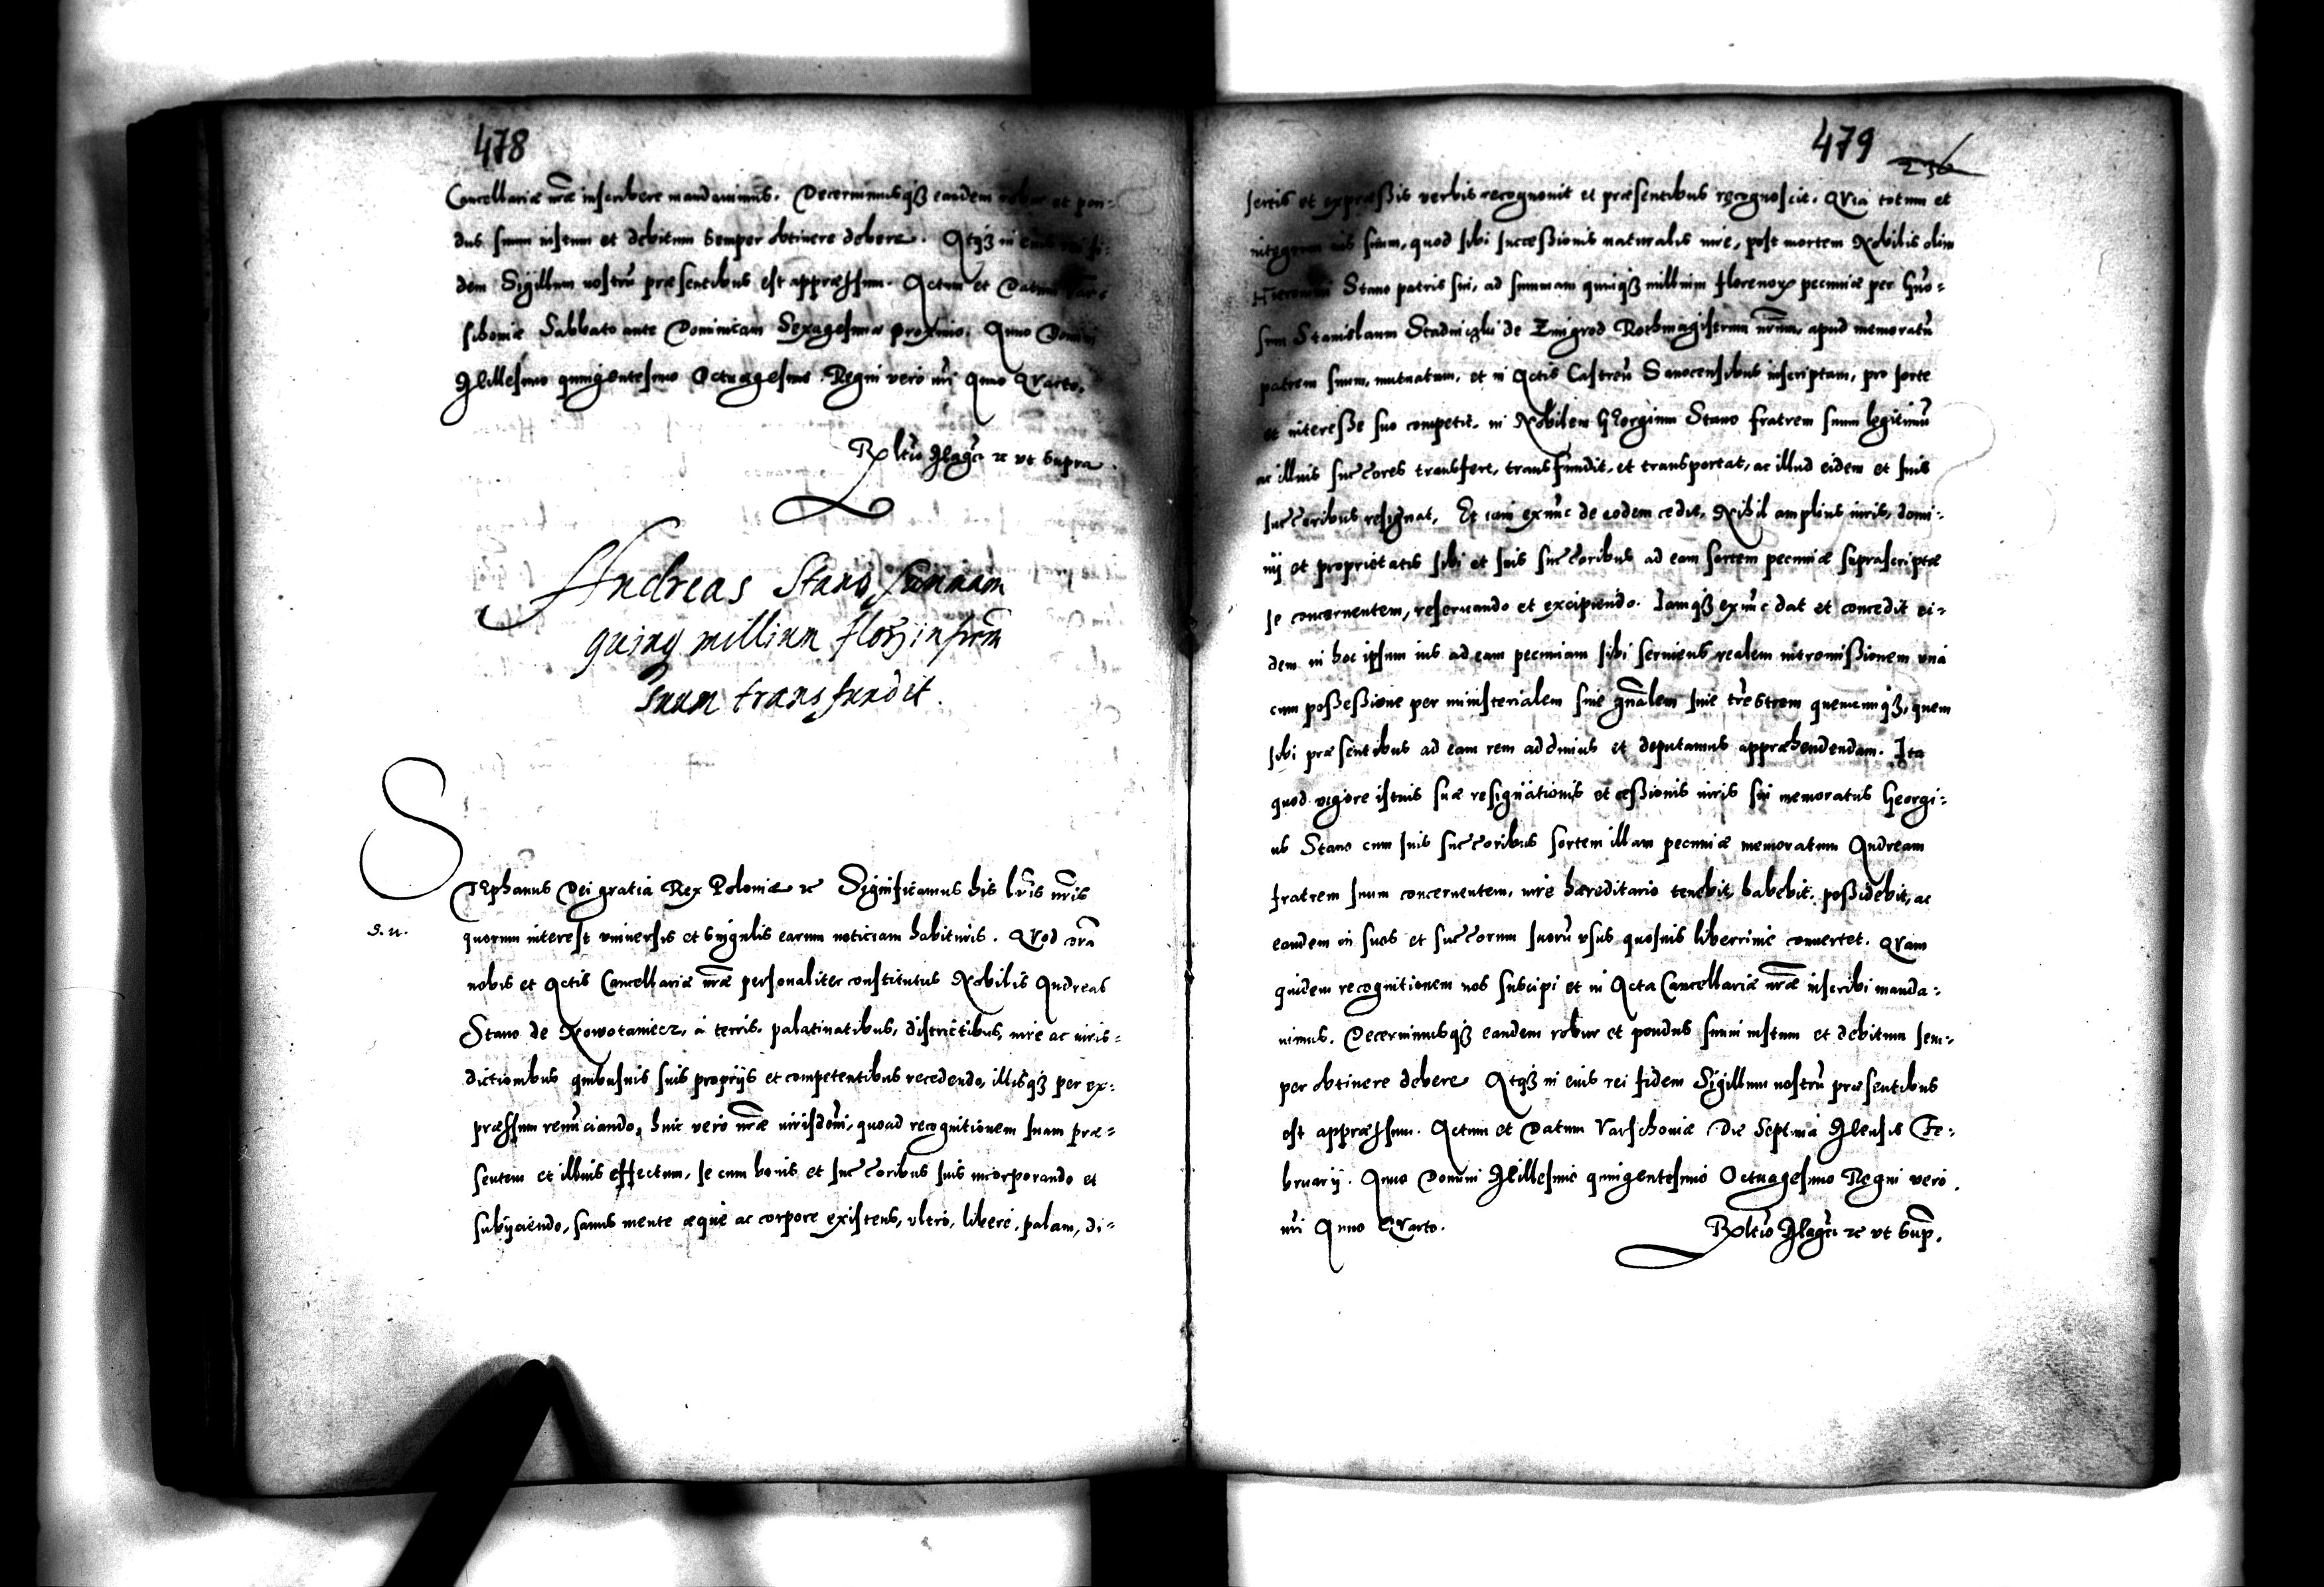 478
Cancellariæ nr̃æ inscribere mandauimus. Decernimusq3 eandem robur et pon=
dus suum iustum et debitum semper obtinere debere. Atq3 in cuius rei fi=
dem Sigillum nostrũ præsentibus est appræssum. Actum et Datum Var=
schoniæ Sabbato ante Dominicam Sexagesimæ proximo. Anno Domini
Millesimo quingentesimo Octuagesimo. Regni vero nr̃i Anno QVarto.
Rx̃ltio Mag̃ci rc vt supra.
Andreas Stano Summam
quinq millium flor in frẽm
suum transfundit.
STEphanus Dei gratia Rex Poloniæ rc Significamus his lr̃is nr̃is
S. n.
quorum interest vniuersis et singulis earum noticiam habituris. QVod corã
nobis et Actis Cancellariæ nr̃æ personaliter constitutus Nobilis Andreas
Stano de Nowotaniecz, á terris, palatinatibus, districtibus, iure ac iuris=
dictionibus quibusuis suis proprijs et competentibus recedendo, illisq3 per ex=
præssum renũciando, huic vero nr̃æ iurisdõni, quoad recognitionem suam præ=
sentem et illius effectum, se cum bonis et succ̃oribus suis incorporando et
subijciendo, sanus mente æque ac corpore existens, vltro, libere, palam, di=
479
236
sertis et expræßis verbis recognouit et præsentibus recognoscit. QVia totum et
integrum ius suum, quod sibi succeßionis naturalis iure, post mortem Nobilis olim
Hieronimi Stano patris sui, ad summam quinq3 millium florenox pecuniæ per Gño=
sum Stanislaum Stadniczki de Zmigrod Rothmagistrum nr̃um, apud memoratũ
patrem suum, mutuatam, et in Actis Castreñ Sanocensibus inscriptam, pro sorte
et intereße suo competit, in Nobilem GEorgium Stano fratrem suum legitimũ
ac illius succ̃ores transfert, transfundit, et transportat, ac illud eidem et suis
succ̃oribus resignat, Et iam exnũc de eodem cedit, Nihil amplius iuris, domi=
nij et proprietatis sibi et suis succ̃oribus ad eam sortem pecuniæ supra scriptæ
se concernentem, reseruando et excipiendo. Iamq3 exnũc dat et concedit ei=
dem in hoc ipsum ius ad eam pecuniam sibi seruiens realem intromißionem vná
cum poßeßione per ministerialem siue gñalem siue tr̃estrem quemcunq3, quem
sibi præsentibus ad eam rem addimus et deputamus appræhendendam. Ita
quod vigore istius suæ resignationis et ceßionis iuris sui memoratus Georgi=
us Stano cum suis succ̃oribus sortem illam pecuniæ memoratum Andream
fratrem suum concernentem, iure hæreditario tenebit, habebit, poßidebit, ac
eandem in suos et succ̃orum suorũ vsus quosuis liberrime conuertet. QVam
quidem recognitionem nos suscipi et in Acta Cancellariæ nr̃æ inscribi manda=
uimus. Decernimusq3 eandem robur et pondus suum iustum et debitum sem=
per obtinere debere Atq3 in cuius rei fidem Sigillum nostrũ præsentibus
est appræssum. Actum et Datum Varschoniæ Die Septima Mensis Fe=
bruarij. Anno Domini Millesimo quingentesimo Octuagesimo Regni vero
nr̃i Anno QVarto.
Rx̃ltio Mag̃ci rc vt sup̃.